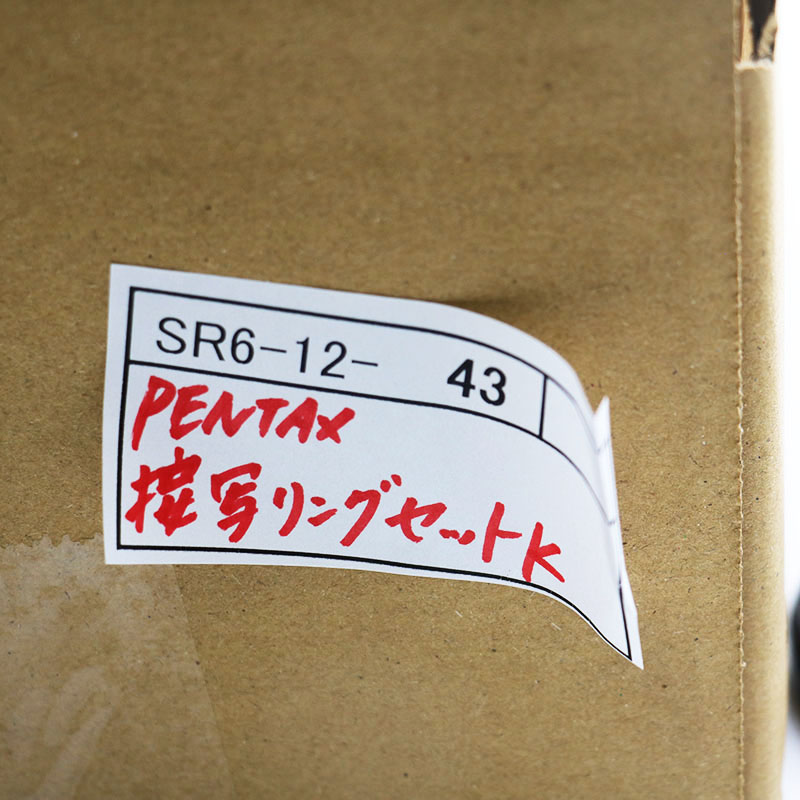 SR6-12- 43
PENTAX
接写リングセットK